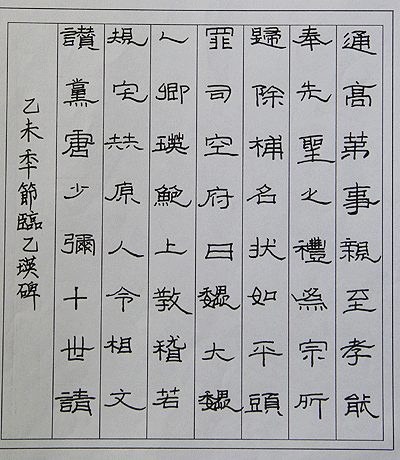 通高苐事親至孝能
奉先聖之禮爲宗所
歸除補名狀如平頭
罪司空府曰魏大魏
人卿瑛鮑上敎稽若
規宅赫原人令相文
讚黨唐少彌十世請
乙未季節臨乙瑛碑